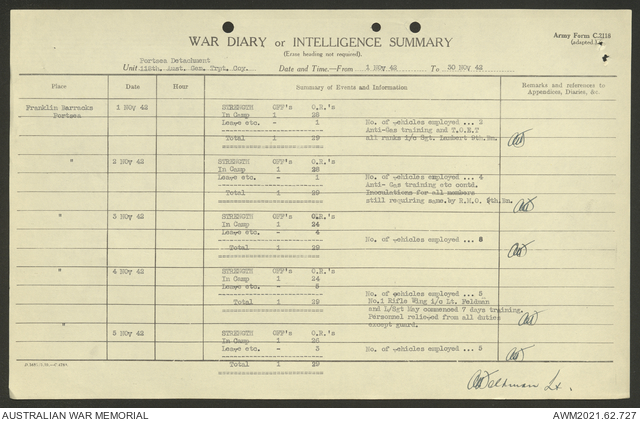 Army Form C.2118
(adapted.)
WAR DIARY or INTELLIGENCE SUMMARY
(Erase heading not required).
Portsea Detachment
Unit 118th. Aust. Gen. Trpt. Coy. Date and Time.—From 1 NOV 42 To 30 NOV 42
Place Date Hour Summary of Events and Information Remarks and references to Appendices, Diaries, &c.
Franklin Barracks 1 NOV 42 STRENGTH OFF's O.R.'s
Portsea In Camp 1 28
Leave etc. - 1 No. of vehicles employed ... 2
Anti-Gas training and T.O.E.T
Total 1 29 all ranks i/c Sgt. Lambert 9th.Bn.
" 2 NOV 42 STRENGTH OFF's O.R.'s
In Camp 1 28
Leave etc. - 1 No. of vehicles employed ... 4
Anti- Gas training etc contd.
Total 1 29 Inoculations for all members
still requiring same.by R.M.O. 9th.Bn.
" 3 NOV 42 STRENGTH OFF's O.R.'s
In Camp 1 24
Leave etc. - 4
No. of vehicles employed ... 8
Total 1 29
" 4 NOV 42 STRENGTH OFF's O.R.'s
In Camp 1 24
Leave etc. - 5
No. of vehicles employed ... 5
Total 1 29 No.1 Rifle Wing i/c Lt. Feldman
and L/Sgt May commenced 7 days training.
Personnel relieved from all duties
except guard.
" 5 NOV 42 STRENGTH OFF's O.R.'s
In Camp 1 26
Leave etc. 3 No. of vehicles employed ... 5
Total 1 29
Lt.
AUSTRALIAN WAR MEMORIAL AWM2021.62.727